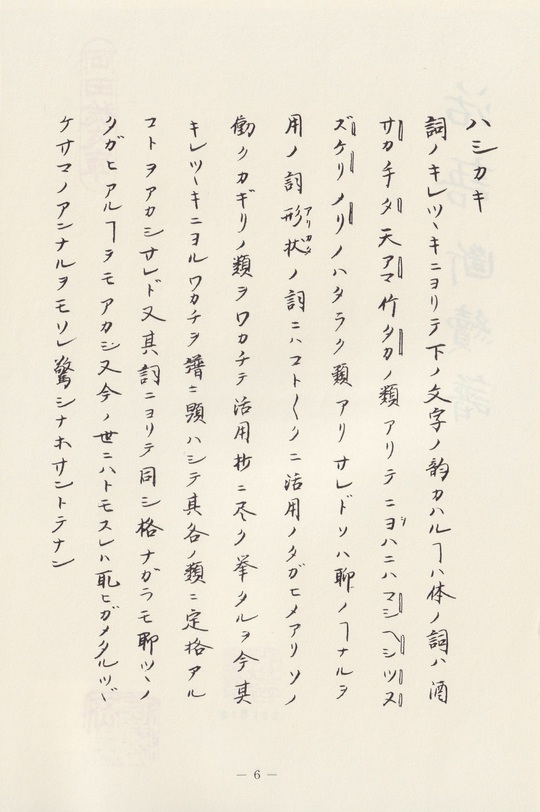 ハシカキ
詞ノキレツヾキニヨリテ下ノ文字ノ韵カハルヿハ体ノ詞ハ酒
サカ手タ天アマ竹タカノ類アリテニヨハニハマシヘシツヌ
ズケリノリノハタラク類アリサレドソハ聊ノヿナルヲ
用ノ詞形状アリカタノ詞ニハコト〱クニ活用ノタガヒメアリソノ
働クカギリノ類ヲワカチテ活用抄ニ尽ク挙タルヲ今其
キレツヾキニヨルワカチヲ譜ニ顕ハシテ其各ノ類ニ定格アル
コトヲアカシサレド又其詞ニヨリテ同シ格ナガラモ聊ツヽノ
タガヒアルヿヲモアカシ又今ノ世ニハトモスレハ耻ヒガメタルツヾ
ケサマノアンナルヲモソレ驚シナホサントテナン
— 6 —